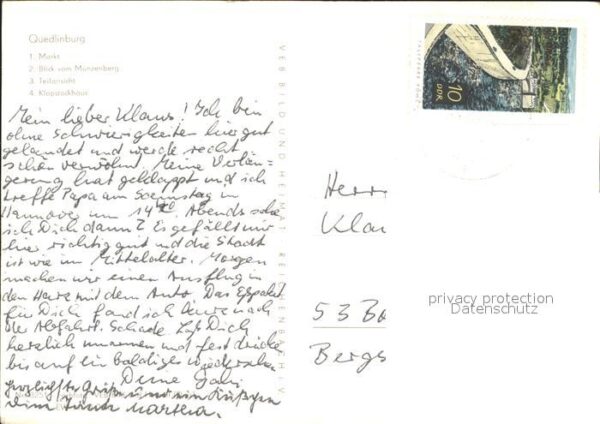 Quedlinburg
1. Markt
2. Blick vom Münzenberg
3. Teilansicht
4. Klopstockhaus
Mein lieber Klaus! Ich bin
ohne Schwierigkeiten hier gut
gelandet und werde recht
schön verwöhnt. Meine Verlän-
gerung hat geklappt und ich
treffe Papa am Samstag in
Hannover um 14 Abends sehe
ich Dich dann? Es gefällt mir
hier richtig gut und die Stadt
ist wie im Mittelalter. Morgen
machen wir einen Ausflug in
den Harz mit dem Auto. Das Eßpaket
für Dich fand ich kurz nach
der Abfahrt. Schade. Laß Dich
herzlich umarmen und fest drücken
bis auf ein baldiges Wiedersehen
Deine
herzlichste Grüße und ein Küßchen
Martha.
VEB BILD UND HEIMAT REICHENBACH I.V.
10
DDR
Herr
Klau
53 Bo
Bergs
privacy protection
Datenschutz